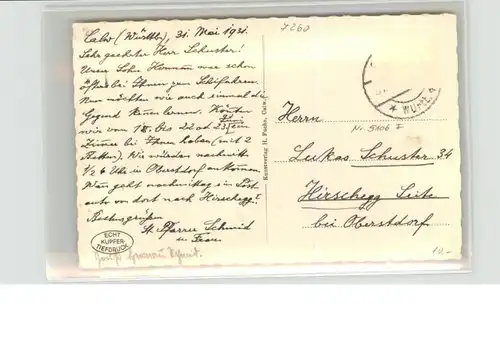 Calw (Württbg), 31. Mai 1931.
Sehr geehrter Herr Schuster!
Unser Sohn Hermann war schon
öfters bei Ihnen zum Schifahren.
Nun möchten wir auch einmal die
Gegend kennen lernen. Könnten
wir vom 18. bis 22. od 23. Juni ein
Zimer bei Ihnen haben (mit 2
Betten). Wir würden nachmitt.
1/2 4 Uhr in Oberstdorf ankomen.
Wan geht nachmittag ein Post-
auto von dort nach Hirschegg?
St. Pfarrer Schmid
u. Frau.
ECHT
KUPFER-
TIEFDRUCK
Kunstverlag H. Fuchs, Calw.
7260
* WÜRTT.
Herrn
Nr. 5106 I
Lukas Schuster 34
Hirschegg Seite
bei Oberstdorf
10,-